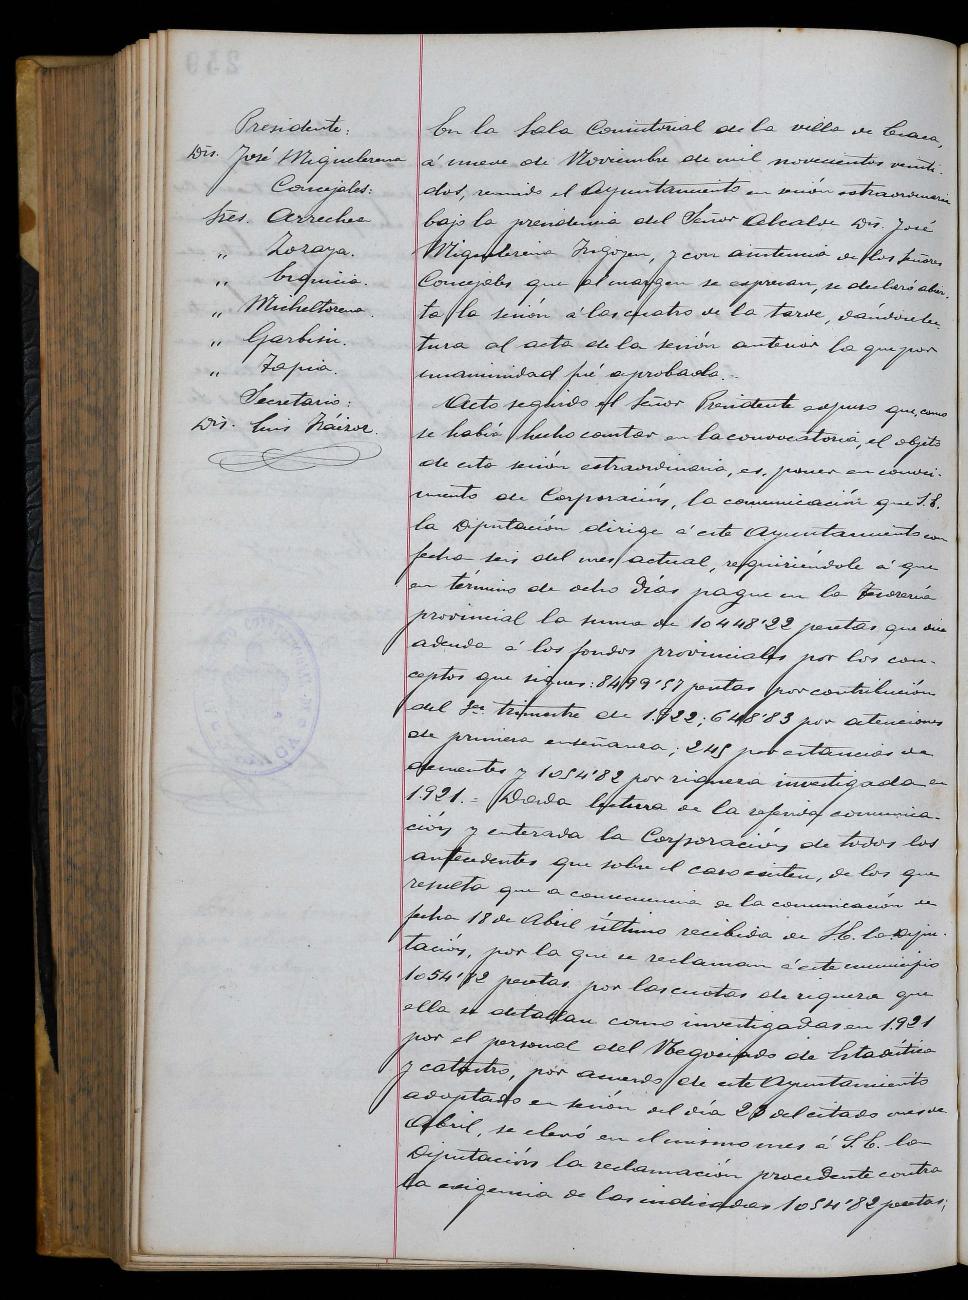 Presidente:
Dn. José Miguelerena
Concejales:
Sres. Arrechea
„ Zoraya.
„ Erquicia.
„ Micheltorena.
„ Garbisu.
„ Tapia.
Secretario:
Dn. Luis Iráizoz.
En la Sala Consistorial de la villa de Lesaca,
á nueve de Noviembre de mil novecientos veinti-
dos, reunido el Ayuntamiento en sesión extraordinaria
bajo la presidencia del Señor Alcalde Dn. José
Miguelerena Irigoyen, y con asistencia de los Señores
Concejales que al margen se expresan, se declaró abier-
ta la sesión á las cuatro de la tarde, dándose lec-
tura al acta de la sesión anterior la que por
unanimidad fué aprobada.-
Acto seguido el Señor Presidente expuso que, como
se había hecho constar en la convocatoria, el objeto
de esta sesión extraordinaria, es, poner en conoci-
miento de Corporación, la comunicación que S.E.
la Diputación dirige á este Ayuntamiento con
fecha seis del mes actual, requiriéndole á que
en termino de ocho días pague en la Tesorería
provincial la suma de 10448'22 pesetas que
adeuda á los fondos provinciales por los con-
ceptos que siguen: 8499'57 pesetas por contribución
del 3er trimestre de 1.922; 648'83 por atenciones
de primera enseñanza; 245 por estancias de
dementes y 1054'82 por riqueza investigada en
1.921.= Dada lectura de la referida comunica-
ción y enterada la Corporación de todos los
antecedentes que sobre el caso existen, de los que
resulta que a consecuencia de la comunicación de
fecha 18 de Abril último recibida de S.E. la Dipu-
tación, por la que se reclaman á este municipio
1054'82 pesetas por las cuotas de riqueza que
ella se detallan como investigadas en 1.921
por el personal del Negociado de Estadística
y catastro, por acuerdo de este Ayuntamiento
adoptado en sesión del día 23 del citado mes de
Abril, se elevó en el mismo mes á S.E. la
Diputación la reclamación procedente contra
la exigencia de las indicadas 1054'82 pesetas;